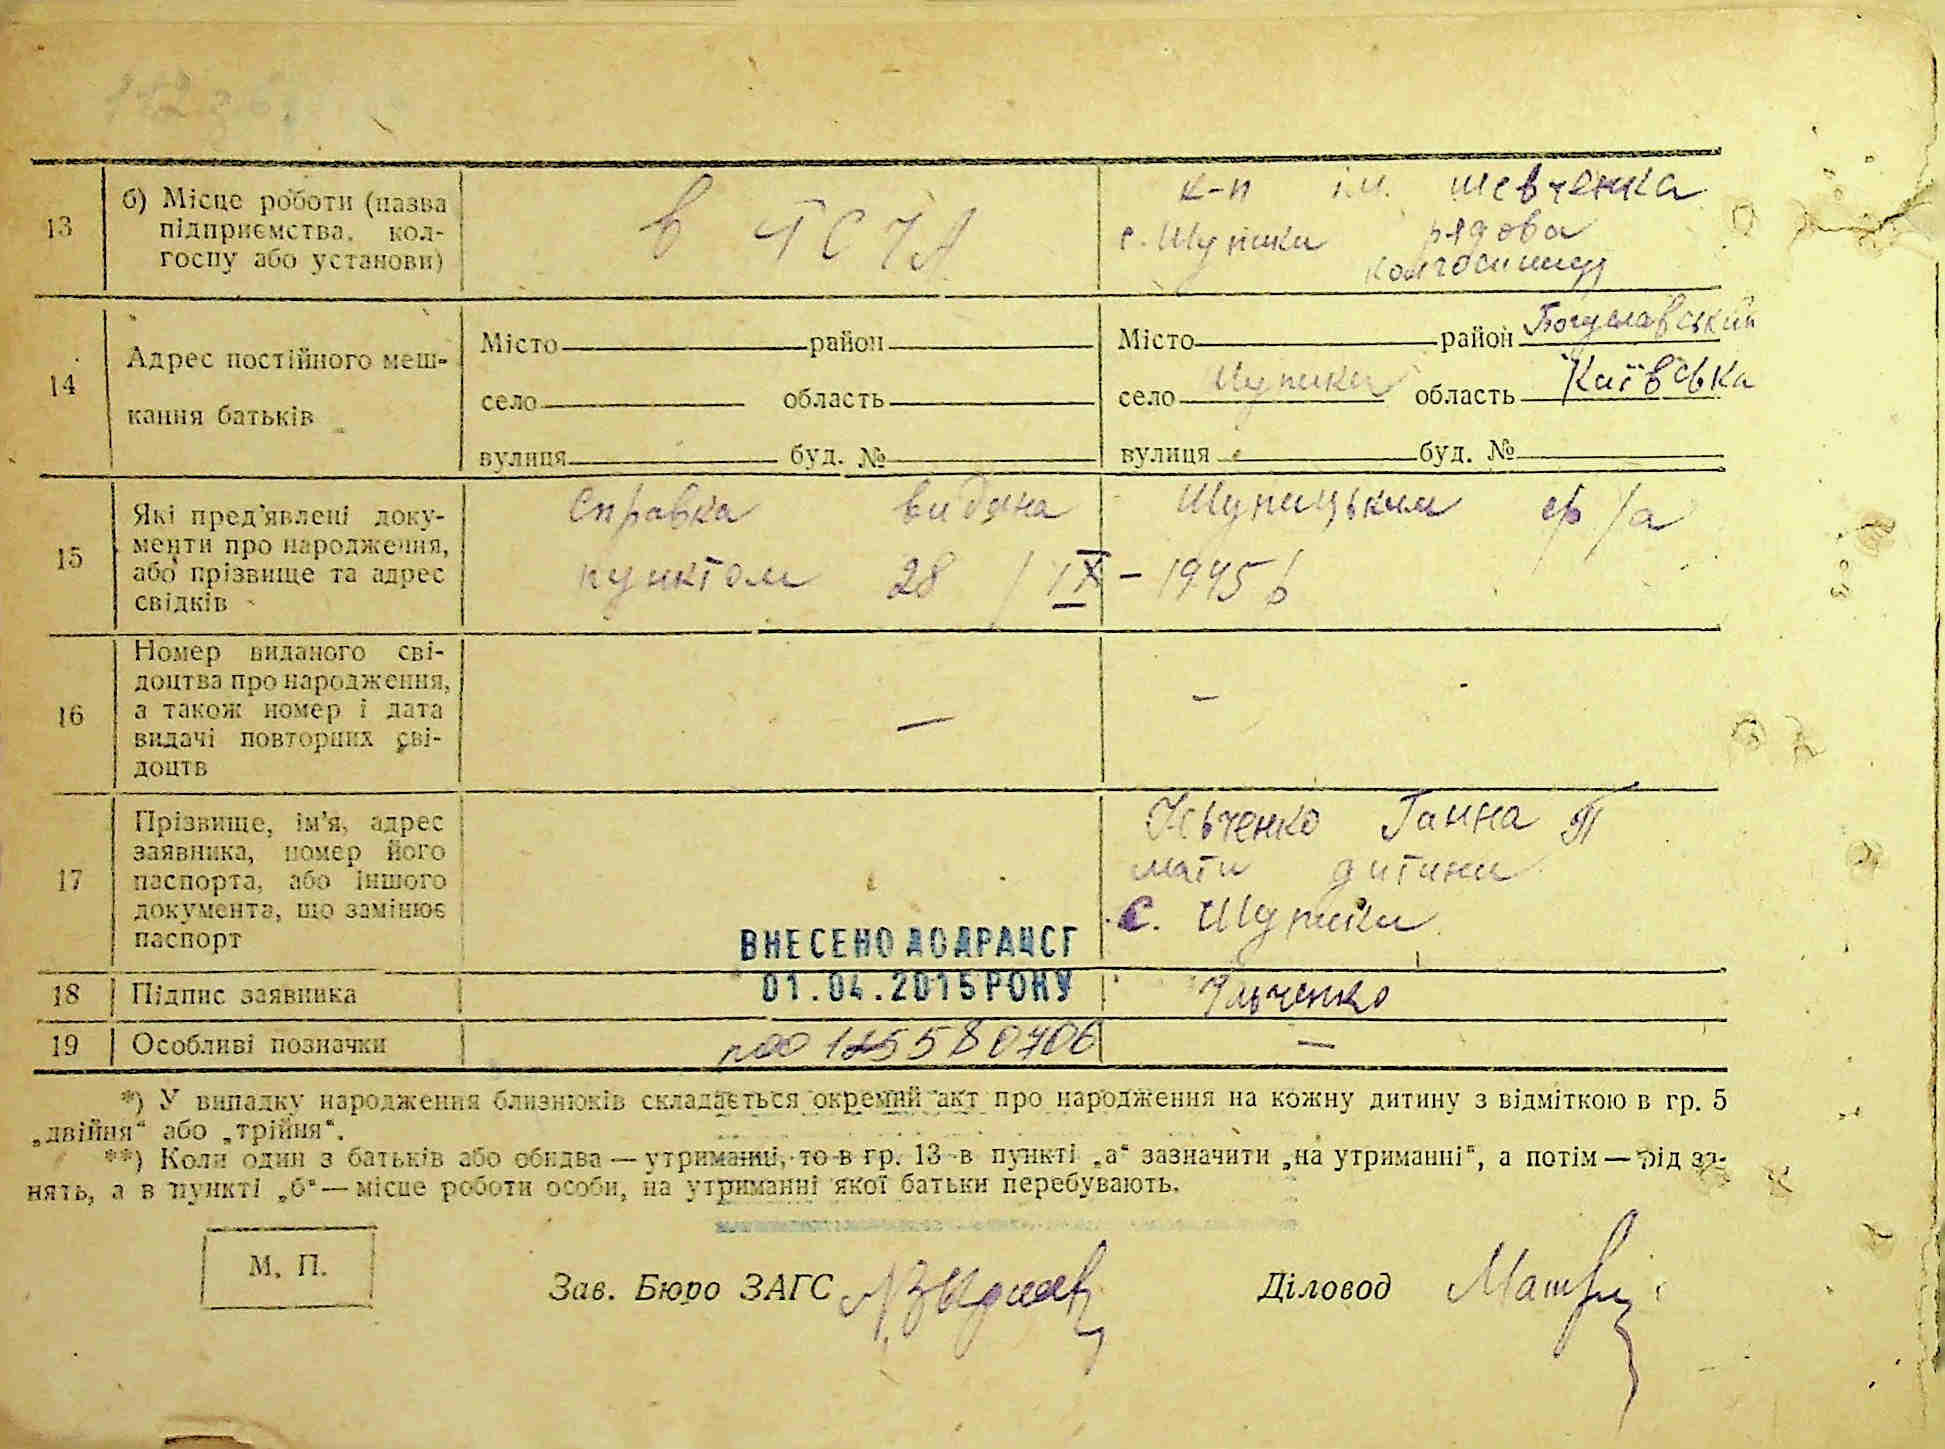 13
б) Місце роботи (назва
підприємства, кол-
госпу або установи)
в
к-п ім. Шевченка
с. Шупики рядова
колгоспниця
14
Адрес постійного меш-
кання батьків
Місто район
село область
вулиця буд. №
Місто район Богуславський
село Шупики область Київська
вулиця буд. №
15
Які пред'явлені доку-
менти про народження,
або прізвище та адрес
свідків
Справка видана Шупицьким ф/а
пунктом 28/IX - 1945 р
16
Номер виданого сві-
доцтва про народження,
а також номер і дата
видачі повторних сві-
доцтв
—
–
17
Прізвище, ім'я, адрес
заявника, номер його
паспорта, або іншого
документа, що замінює
паспорт
Ільченко Ганна Т
мати дитини
с. Шупики
ВНЕСЕНО ДО ДРАЦСГ
01.04.2015 РОКУ
18
Підпис заявника
Ільченко
19
Особливі позначки
—
*) У випадку народження близнюків складається окремий акт про народження на кожну дитину з відміткою в гр. 5
„двійня“ або „трійня“.
**) Коли один з батьків або обидва — утриманці, то в гр. 13 в пункті „а“ зазначити „на утриманні“, а потім — рід за-
нять, а в пункті „б“ — місце роботи особи, на утриманні якої батьки перебувають.
М. П.
Зав. Бюро ЗАГС
Діловод